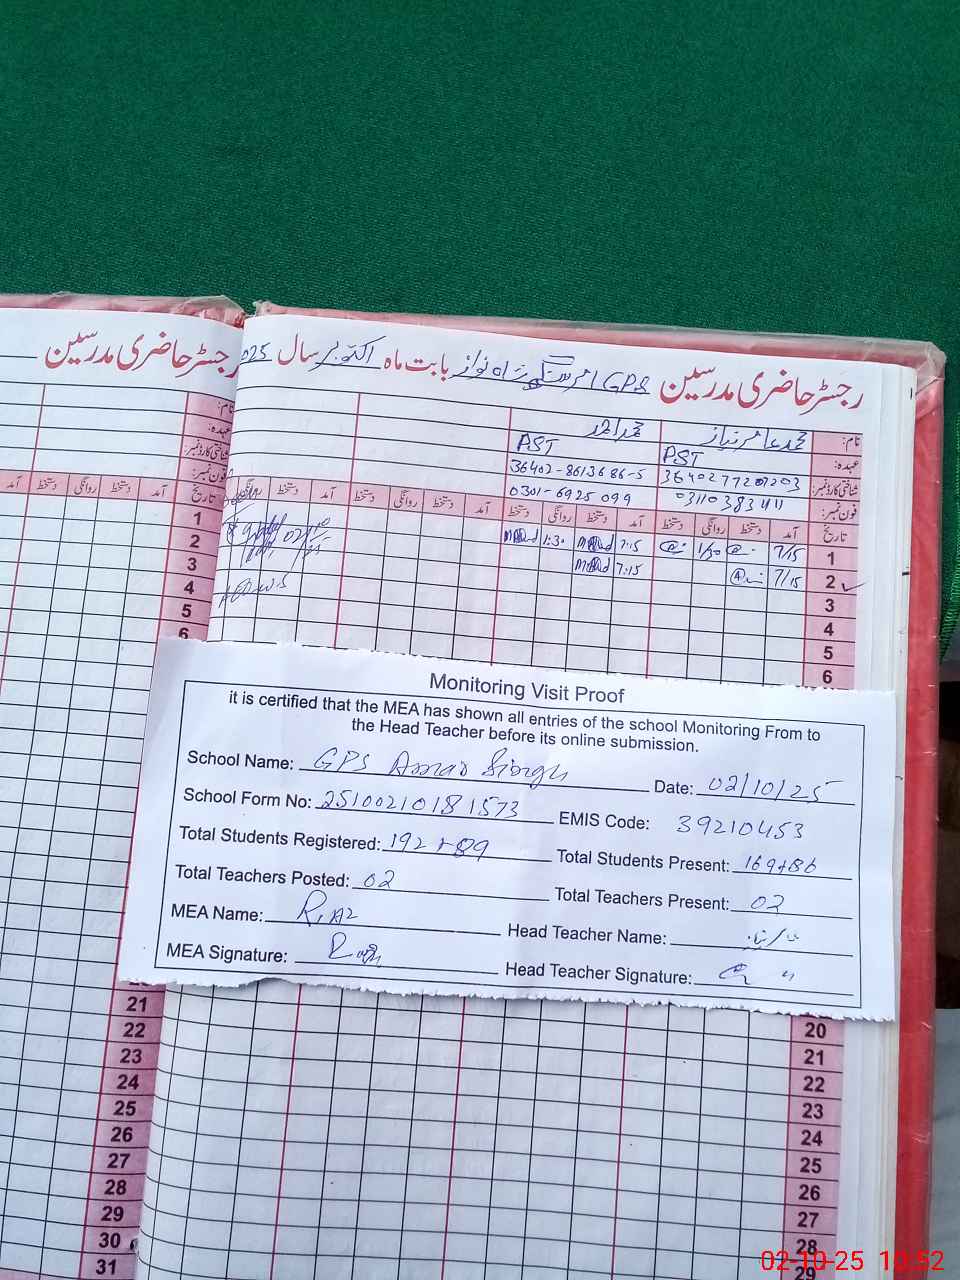 رجسٹر حاضری مدرسین GPS امر سنگھ شاہ نواز بابت ماہ اکتوبر سال 025
رجسٹر حاضری مدرسین
نام: محمد عامر نیاز محمد احمد
عہدہ: PST PST
شناختی کارڈ نمبر: 3640277207203 36402-8613686-5
فون نمبر: 03110383411 0301-6925099
تاریخ آمد دستخط روانگی دستخط آمد دستخط روانگی دستخط آمد دستخط روانگی دستخط آمد دستخط روانگی
1 7/15 1/30 7:15 1:30
2 7/15 7:15
3
4
5
6
نام:
عہدہ:
شناختی کارڈ نمبر:
فون نمبر:
تاریخ آمد دستخط روانگی دستخط آمد
1
2
3
4
5
6
Monitoring Visit Proof
it is certified that the MEA has shown all entries of the school Monitoring From to
the Head Teacher before its online submission.
School Name: GPS Amar Singh Date: 02/10/25
School Form No: 25100210181573 EMIS Code: 39210453
Total Students Registered: 192+89 Total Students Present: 169+86
Total Teachers Posted: 02 Total Teachers Present: 02
MEA Name: Riaz Head Teacher Name:
MEA Signature: Head Teacher Signature:
21
22
23
24
25
26
27
28
29
30
31
20
21
22
23
24
25
26
27
28
29
02-10-25 10:52